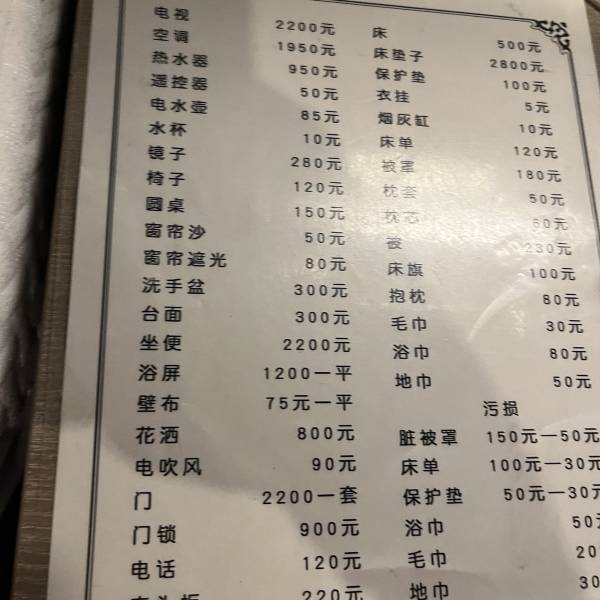 电视 2200元
空调 1950元
热水器 950元
遥控器 50元
电水壶 85元
水杯 10元
镜子 280元
椅子 120元
圆桌 150元
窗帘沙 50元
窗帘遮光 80元
洗手盆 300元
台面 300元
坐便 2200元
浴屏 1200一平
壁布 75元一平
花洒 800元
电吹风 90元
门 2200一套
门锁 900元
电话 120元
220元
床 500元
床垫子 2800元
保护垫 100元
衣挂 5元
烟灰缸 10元
床单 120元
被罩 180元
枕套 50元
枕芯 60元
被 230元
床旗 100元
抱枕 80元
毛巾 30元
浴巾 80元
地巾 50元
污损
脏被罩 150元—50元
床单 100元—30元
保护垫 50元—30元
浴巾 50
毛巾 20
地巾 30